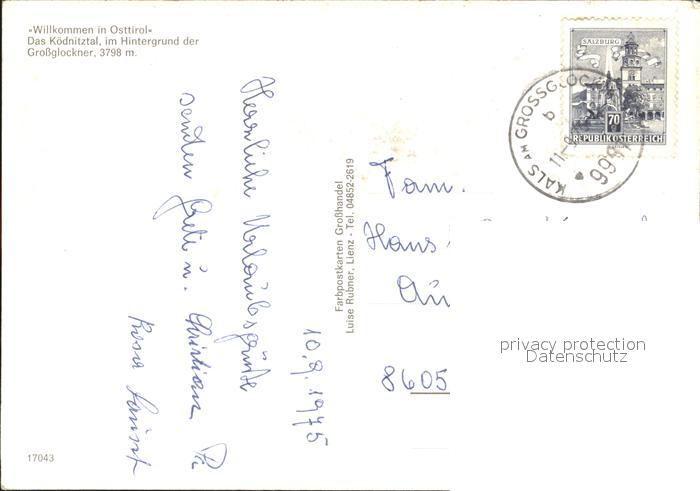 »Willkommen in Osttirol«
Das Ködnitztal, im Hintergrund der
Großglockner, 3798 m.
SALZBURG
70
REPUBLIK ÖSTERREICH
KALS AM GROSSGLOC
b
Herrliche Urlaubsgrüße
senden Greti u. Christian
Rosa
10.9.1975
Farbpostkarten Großhandel
Luise Rubner, Lienz - Tel. 04852-2619
Fam.
Hans
8605
privacy protection
Datenschutz
17043